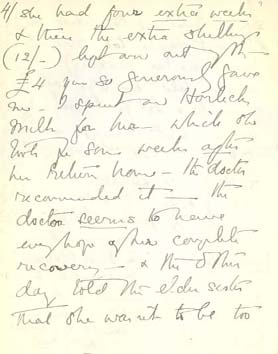 4/ she had four extra weeks
& then the extra shillings
(12/-) left over out of the
£4 you so generously gave
me. I spent on Horlicks
Milk for her - which she
took for some weeks after
her return home - the doctor
recommended it - the
doctor seems to have
every hope of her complete
recovery - & the other
day told the elder sister
that she was not to be too